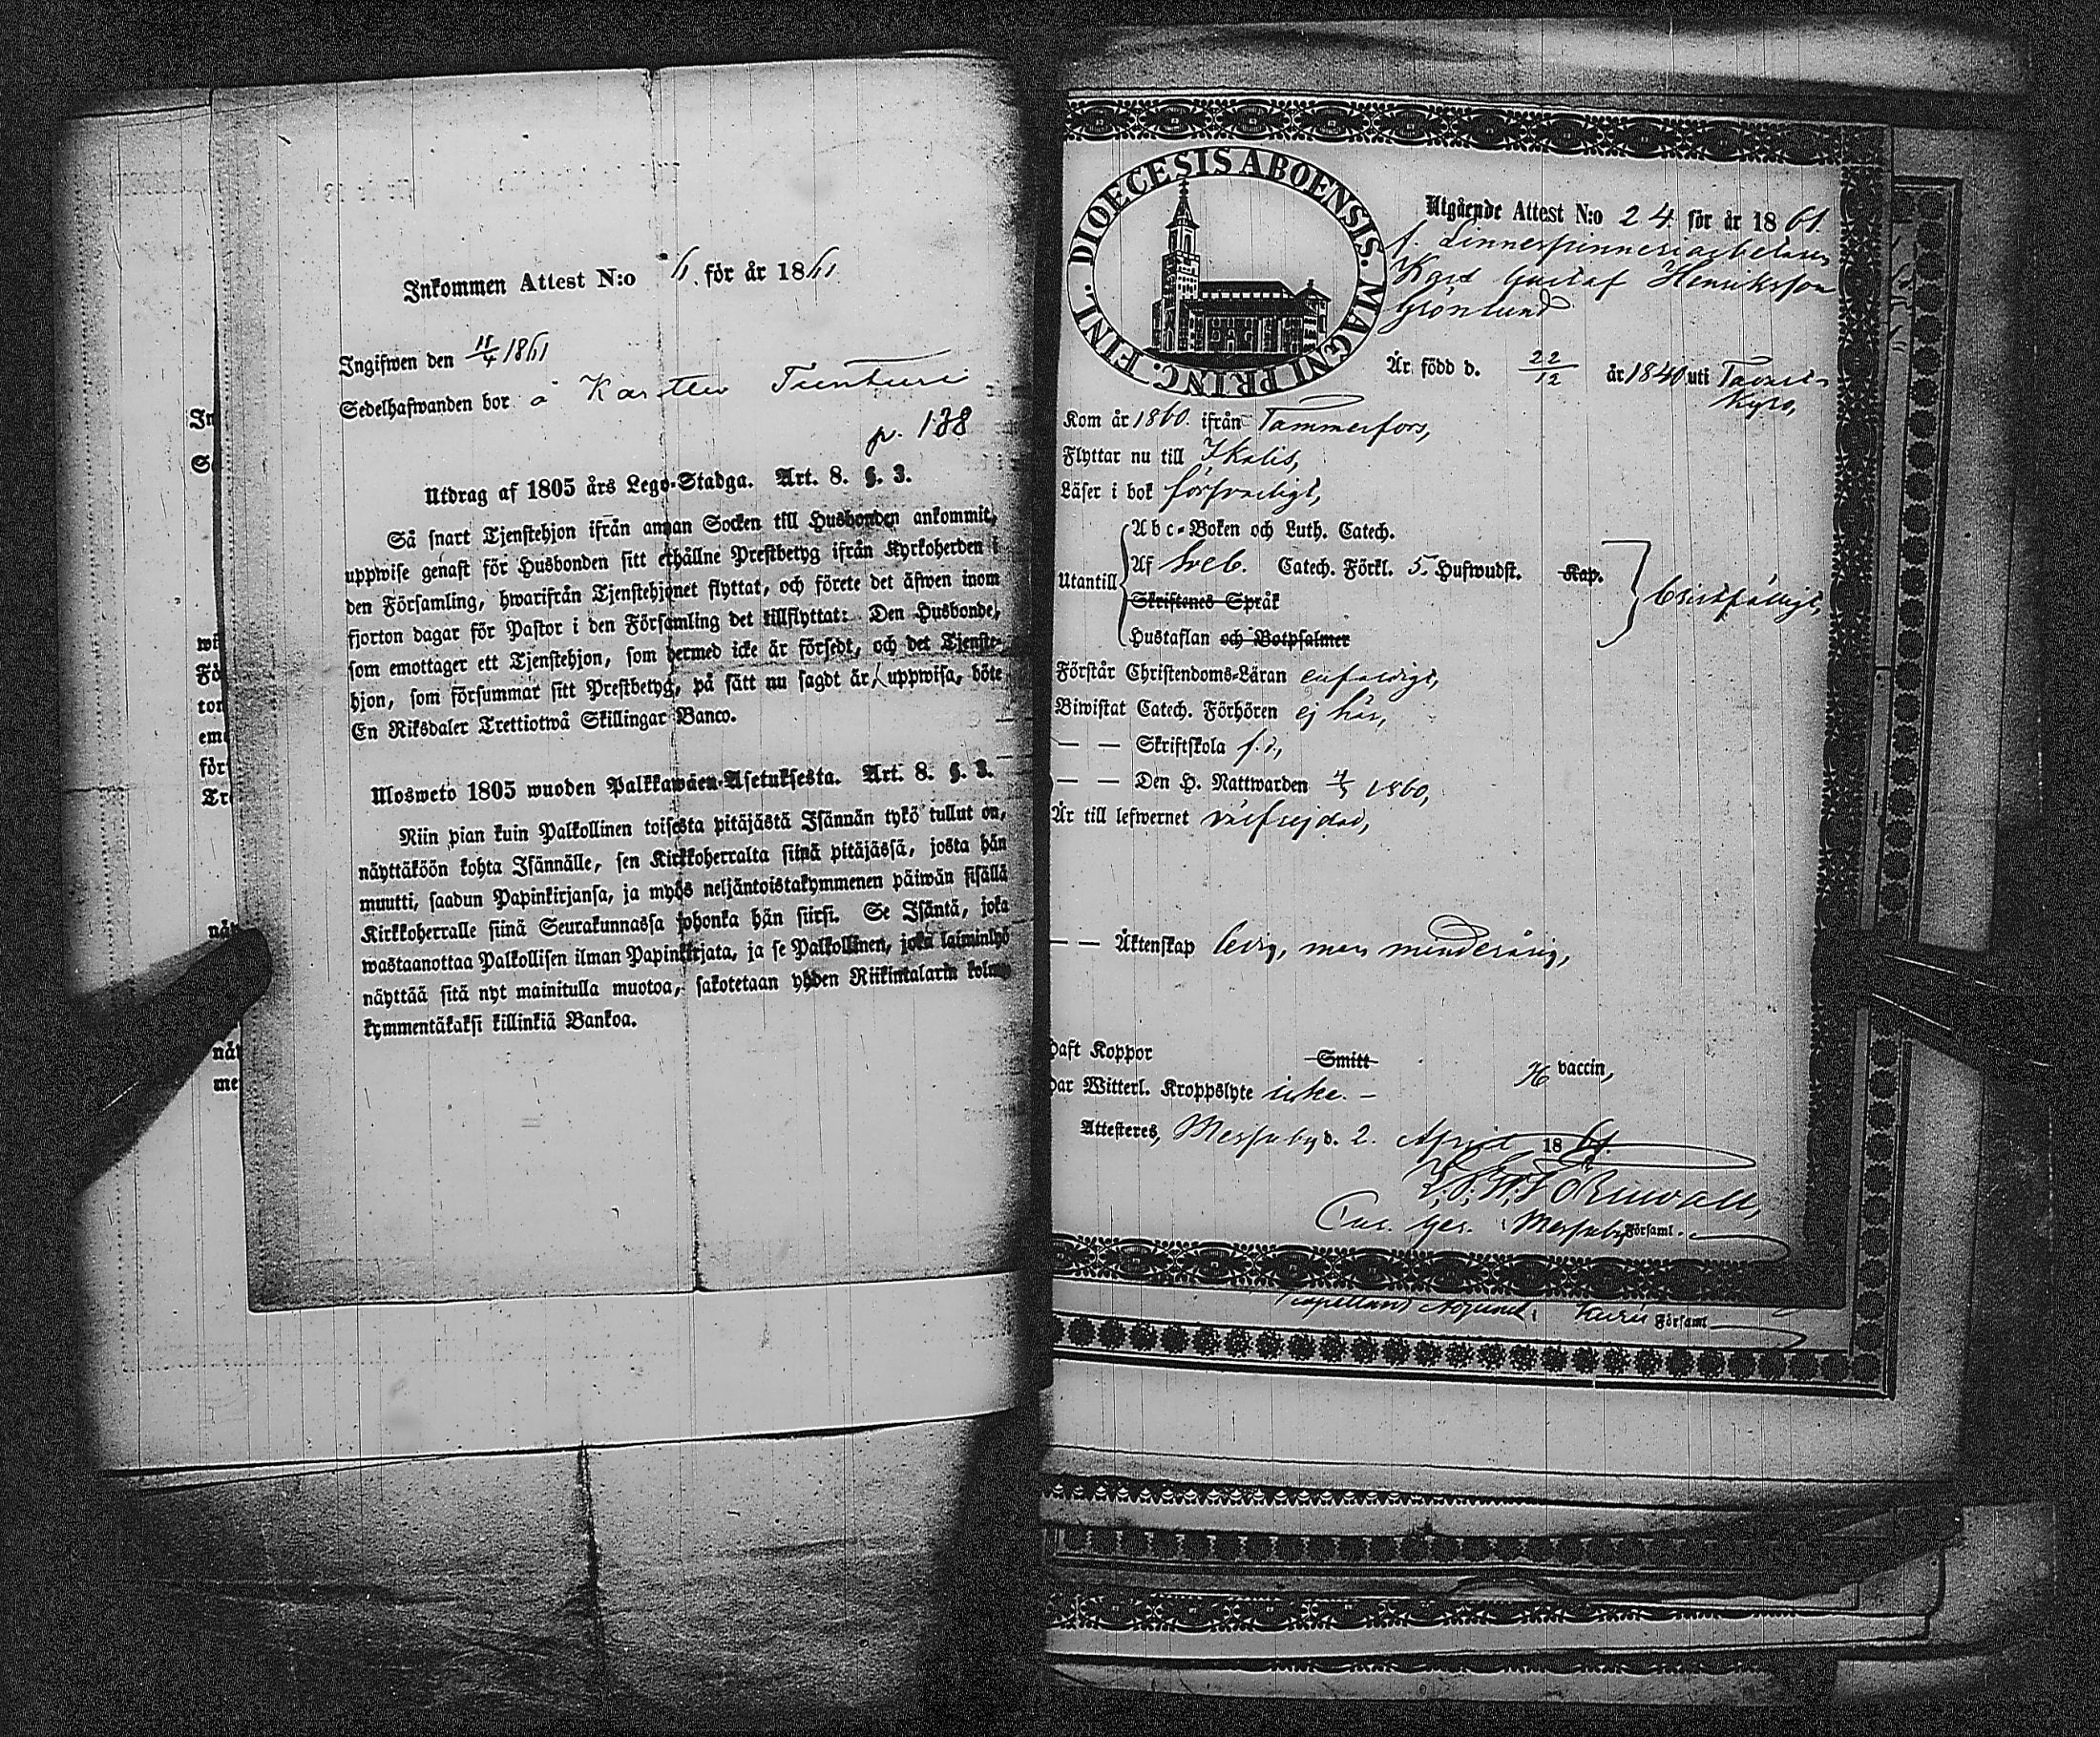 Inkommen Attest N:o 61. för år 1861.
Ingifwen den 11/4 1861
Sedelhafwanden bor å Kartlu Tunturi
p. 138
Utdrag af 1805 års Lego-Stadga. Art. 8. §. 3.
Så snart Tjenstehjon ifrån annan Socken till Husbonden ankommit,
uppwise genast för Husbonden sitt erhållne Prestbetyg ifrån Kyrkoherden i
den Församling, hwarifrån Tjenstehjonet flyttat, och förete det äfwen inom
fjorton dagar för Pastor i den Församling det tillflyttat: Den Husbonde,
som emottager ett Tjenstehjon, som hermed icke är försedt, och det Tjenste-
hjon, som försummar sitt Prestbetyg, på sätt nu sagdt är, uppwisa, böte
En Riksdaler Trettiotwå Skillingar Banco.
Ulosweto 1805 wuoden Palkkawäen-Asetuksesta. Art. 8. §. 3.
Niin pian kuin Palkollinen toisesta pitäjästä Isännän tykö tullut on,
näyttäköön kohta Isännälle, sen Kirkkoherralta siinä pitäjässä, josta hän
muutti, saadun Papinkirjansa, ja myös neljäntoistakymmenen päiwän sisällä
Kirkkoherralle siinä Seurakunnassa johonka hän siirsi. Se Isäntä, joka
wastaanottaa Palkollisen ilman Papinkirjata, ja se Palkollinen, joka laiminlyö
näyttää sitä nyt mainitulla muotoa, sakotetaan yhden Riikintalarin kolme
kymmentäkaksi killinkiä Bankoa.
DIOECESIS ABOENSIS. MAGNI PRINC. FINL.
Utgående Attest N:o 24. för år 1861.
f. Linnespinneriarbetaren
Karl Gustaf Henriksson
Grönlund
Är född d. 22/12 år 1840 uti Tavast-
kyro,
Kom år 1860. ifrån Tammerfors,
Flyttar nu till Ikalis,
Läser i bok försvarligt,
Utantill
Abc-Boken och Luth. Catech.
Af Sveb. Catech. Förkl. 5. Hufwudst. Kap.
Skriftenes Språk
Hustaflan och Botpsalmer
bristfälligt,
Förstår Christendoms-Läran enfaldigt,
Biwistat Catech. Förhören ej här,
— — Skriftskola f. d,
— — Den H. Nattwarden 4/3 1860,
Är till lefwernet välfrejdad,
— — Äktenskap ledig, men minderårig,
haft Koppor Smitt H vaccin,
har Witterl. Kroppslyte icke. —
Attesteres, Messuby d. 2. April 1861.
Past. Messuby Församl.
Kapellans Kuru Församl.